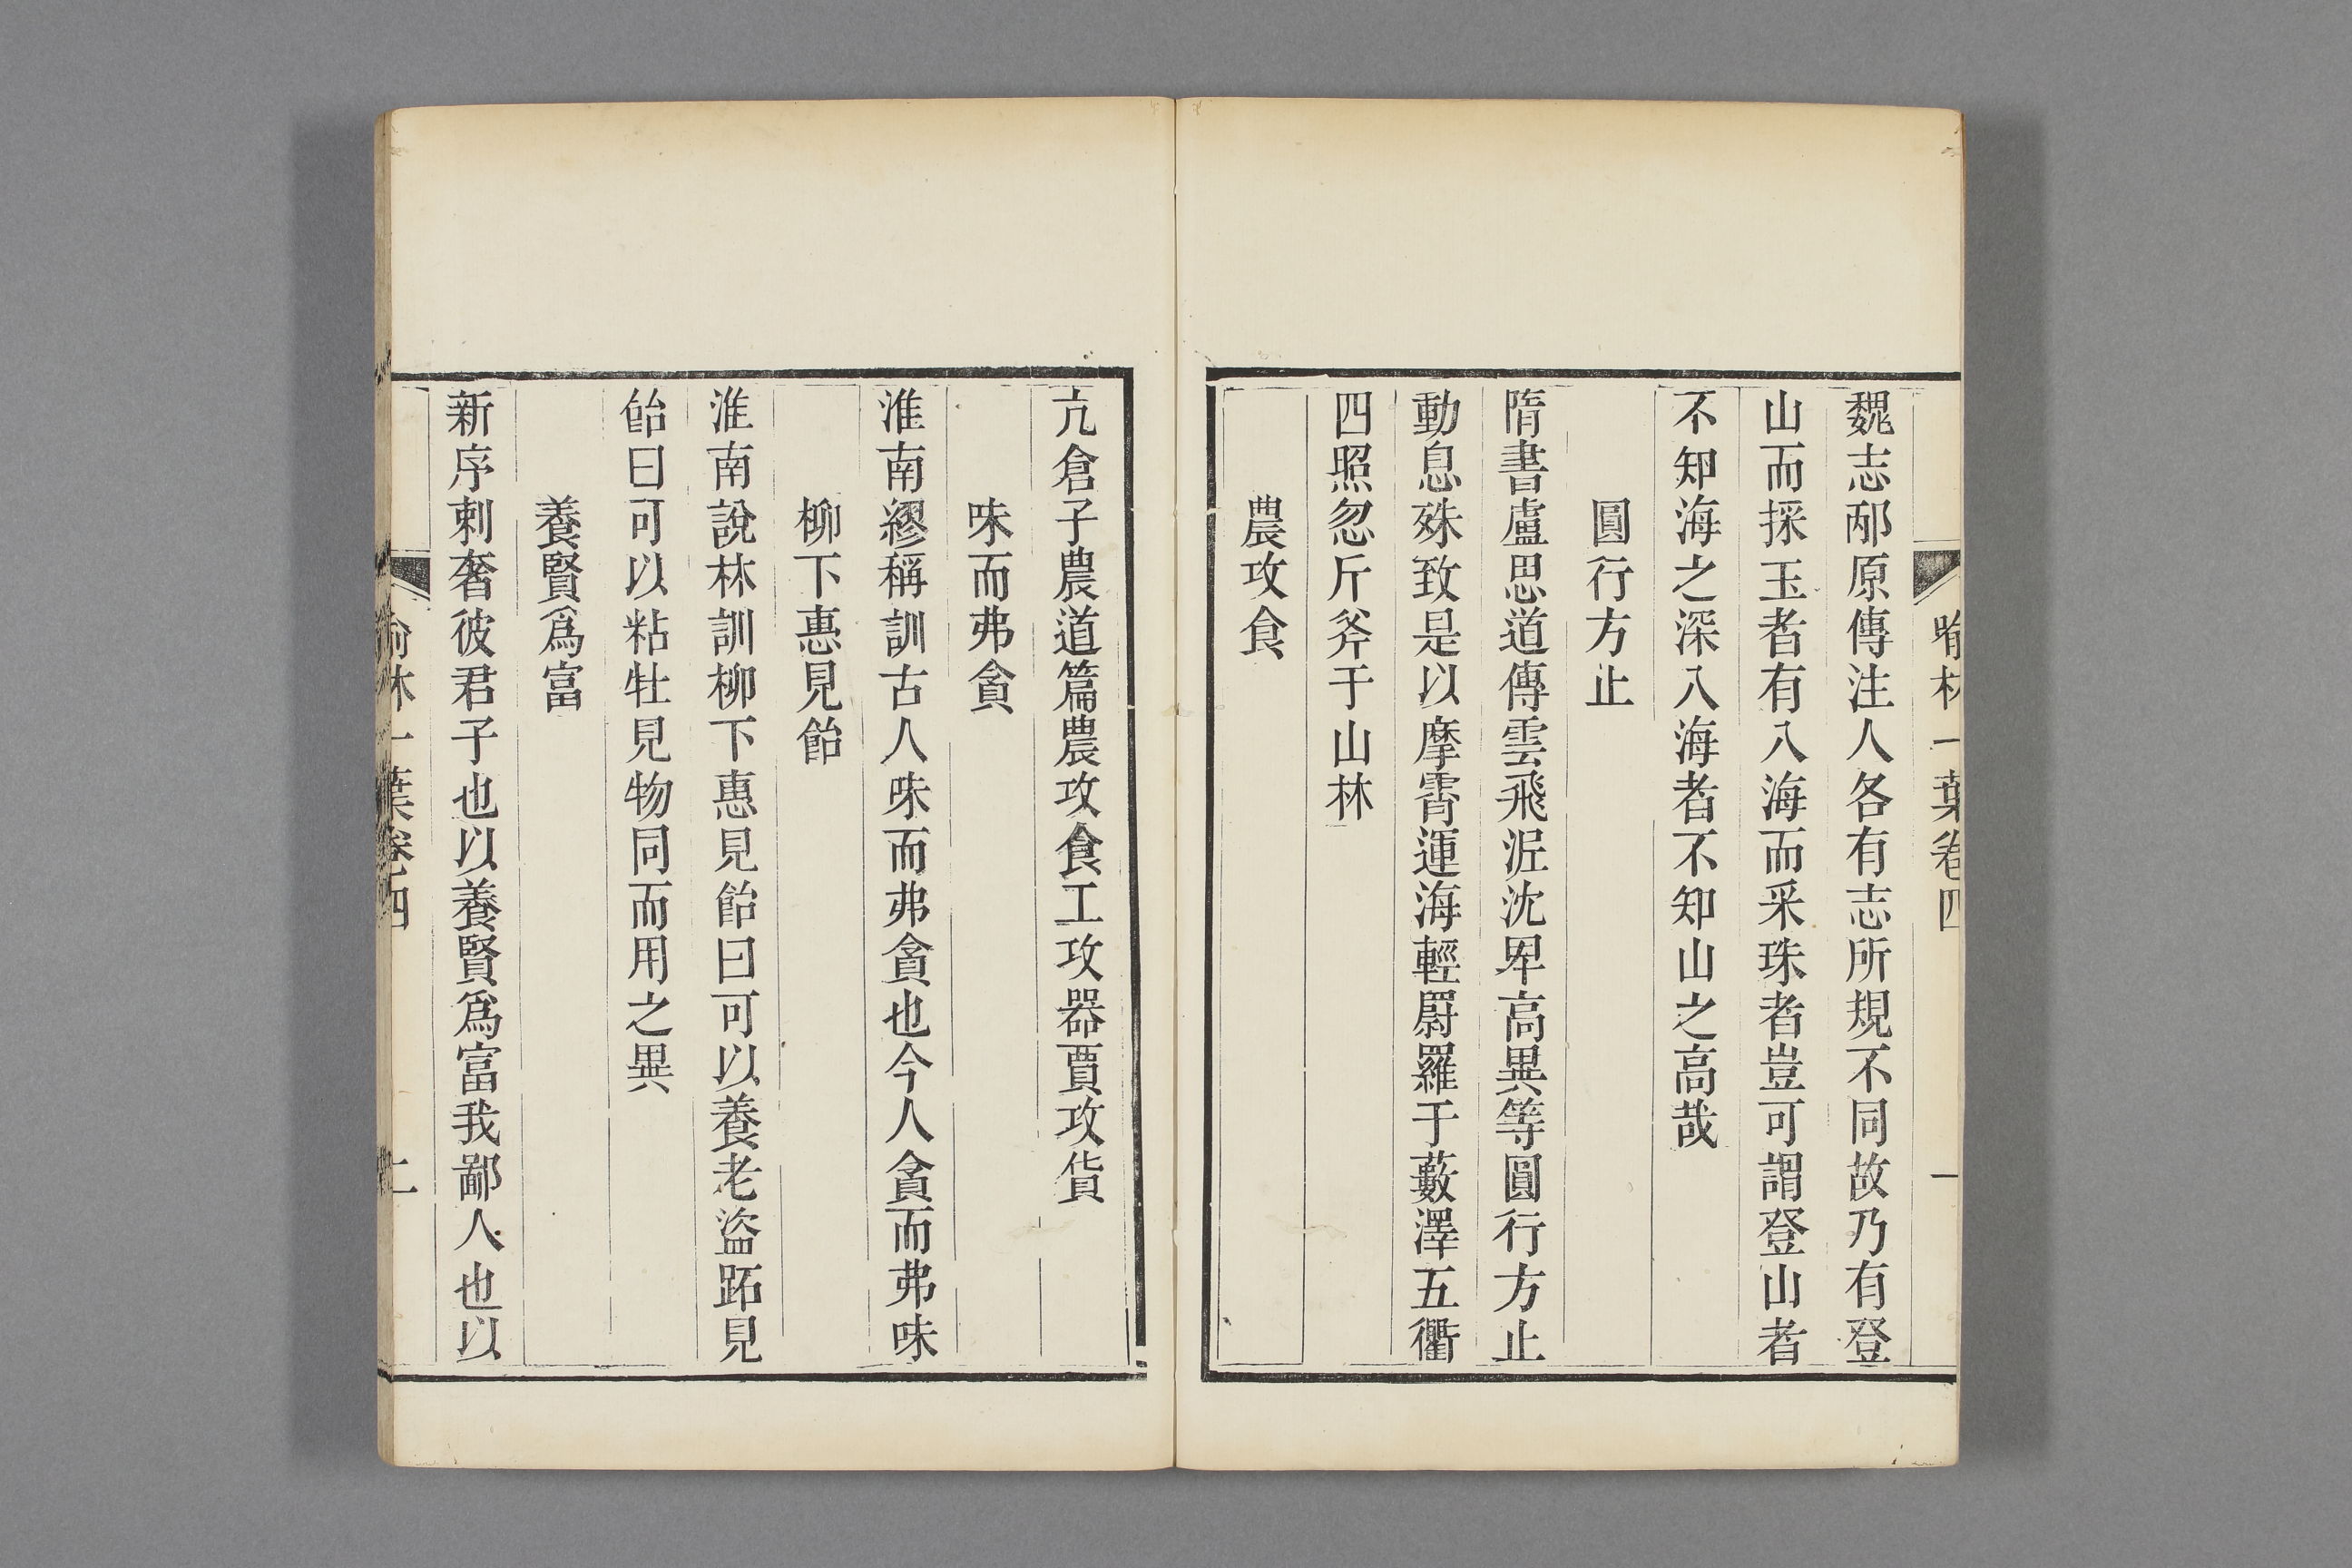 喻林一葉卷四
一
魏志邴原傳注人各有志所規不同故乃有登
山而採玉者有入海而采珠者豈可謂登山者
不知海之深入海者不知山之高哉
圓行方止
隋書盧思道傳雲飛泥沈卑高異等圓行方止
動息殊致是以摩霄運海輕罻羅于藪澤五衢
四照忽斤斧于山林
農攻食
亢倉子農道篇農攻食工攻器賈攻貨
味而弗貪
淮南繆稱訓古人味而弗貪也今人貪而弗味
柳下惠見飴
淮南說林訓柳下惠見飴曰可以養老盜跖見
飴曰可以粘牡見物同而用之異
養賢爲富
新序刺奢彼君子也以養賢爲富我鄙人也以
喻林一葉卷四
二